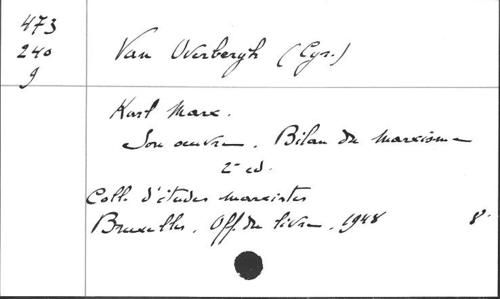 473
240
9
Van Overbergh (Cyr.)
Karl Marx.
Son oeuvre. Bilan du marxisme
2e ed.
Coll. d'études marxistes
Bruxelles, Off. du livre, 1948 8°